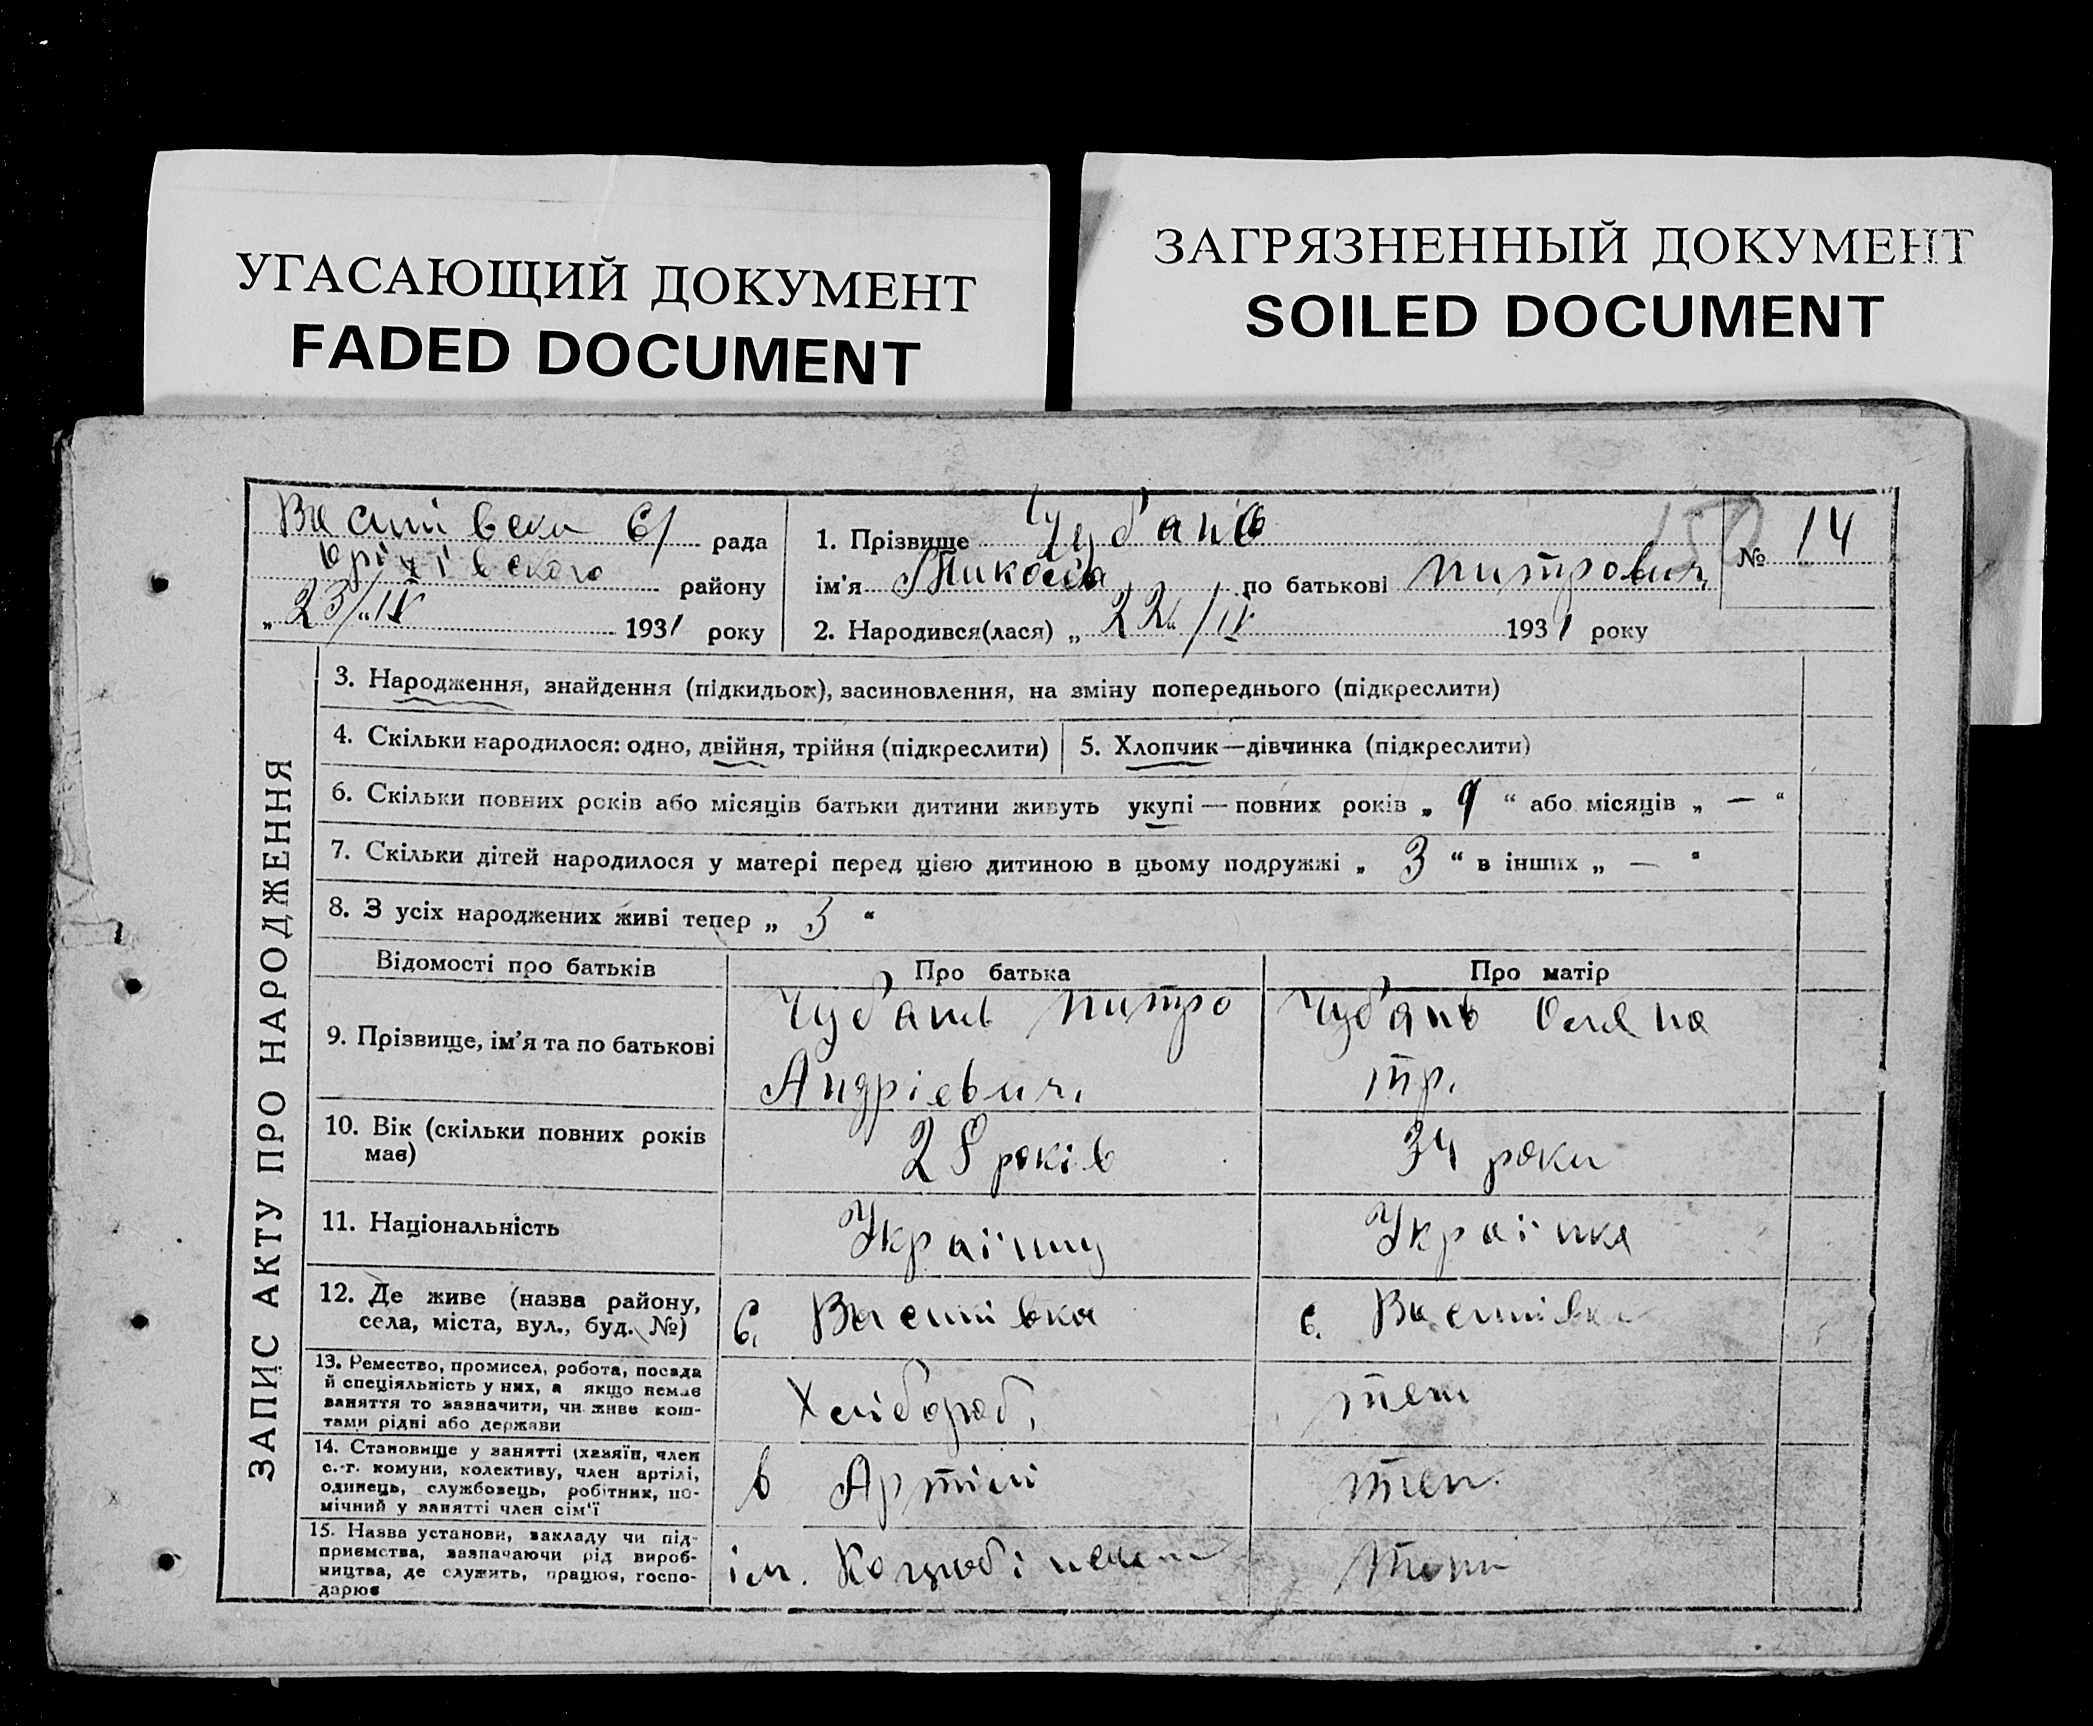 УГАСАЮЩИЙ ДОКУМЕНТ
FADED DOCUMENT
ЗАГРЯЗНЕННЫЙ ДОКУМЕНТ
SOILED DOCUMENT
с/ рада
району
„ 23/“ IV 1931 року
1. Прізвище Чубань
ім'я Микола по батькові Митрович
2. Народився(лася) „ 22 “/IV 1931 року
150
№ 14
ЗАПИС АКТУ ПРО НАРОДЖЕННЯ
3. Народження, знайдення (підкидьок), засиновлення, на зміну попереднього (підкреслити)
4. Скільки народилося: одно, двійня, трійня (підкреслити)
5. Хлопчик—дівчинка (підкреслити)
6. Скільки повних років або місяців батьки дитини живуть укупі — повних років „ 9 “ або місяців „ — “
7. Скільки дітей народилося у матері перед цією дитиною в цьому подружжі „ 3 “ в інших „ — “
8. З усіх народжених живі тепер „ 3 “
Відомості про батьків
Про батька
Про матір
9. Прізвище, ім'я та по батькові
Чубань Митро
Андрієвич,
Чубань Оляна
тр.
10. Вік (скільки повних років
має)
28 років
34 роки
11. Національність
Україниц
Українка
12. Де живе (назва району,
села, міста, вул., буд. №)
с.
с.
13. Ремество, промисел, робота, посада
й спеціяльність у них, а якщо немає
заняття то зазначити, чи живе кош-
тами рідні або держави
Хлібороб,
теж
14. Становище у занятті (хазяїн, член
с.-г. комуни, колективу, член артілі,
одинець, службовець, робітник, по-
мічний у занятті член сім'ї
в Артілі
теж
15. Назва установи, закладу чи під-
приємства, зазначаючи рід вироб-
ництва, де служить, працює, госпо-
дарює
ім.